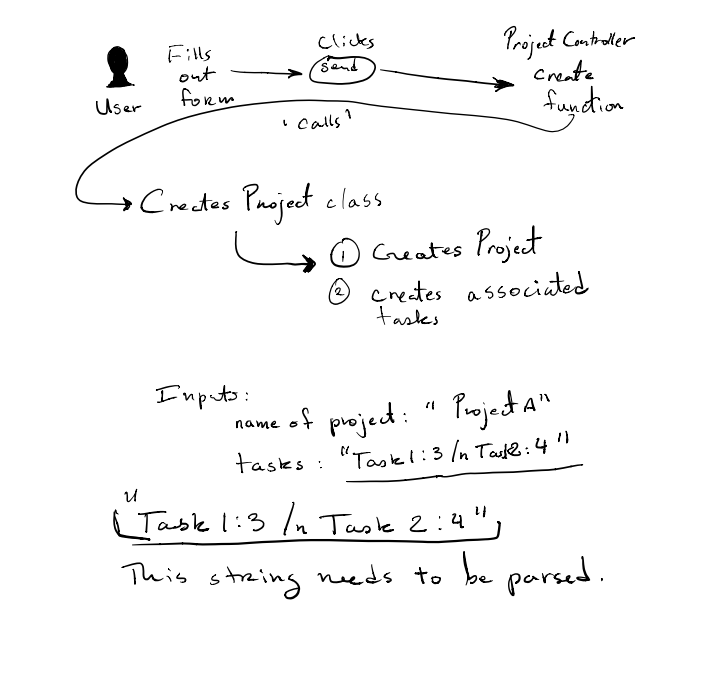 User
Fills
out
form
Clicks
send
Project Controller
create
function
'calls'
Creates Project class
1 Creates Project
2 creates associated
tasks
Inputs:
name of project: "Project A"
tasks: "Task1:3 /n Task2:4"
"Task 1:3 /n Task 2:4"
This string needs to be parsed.